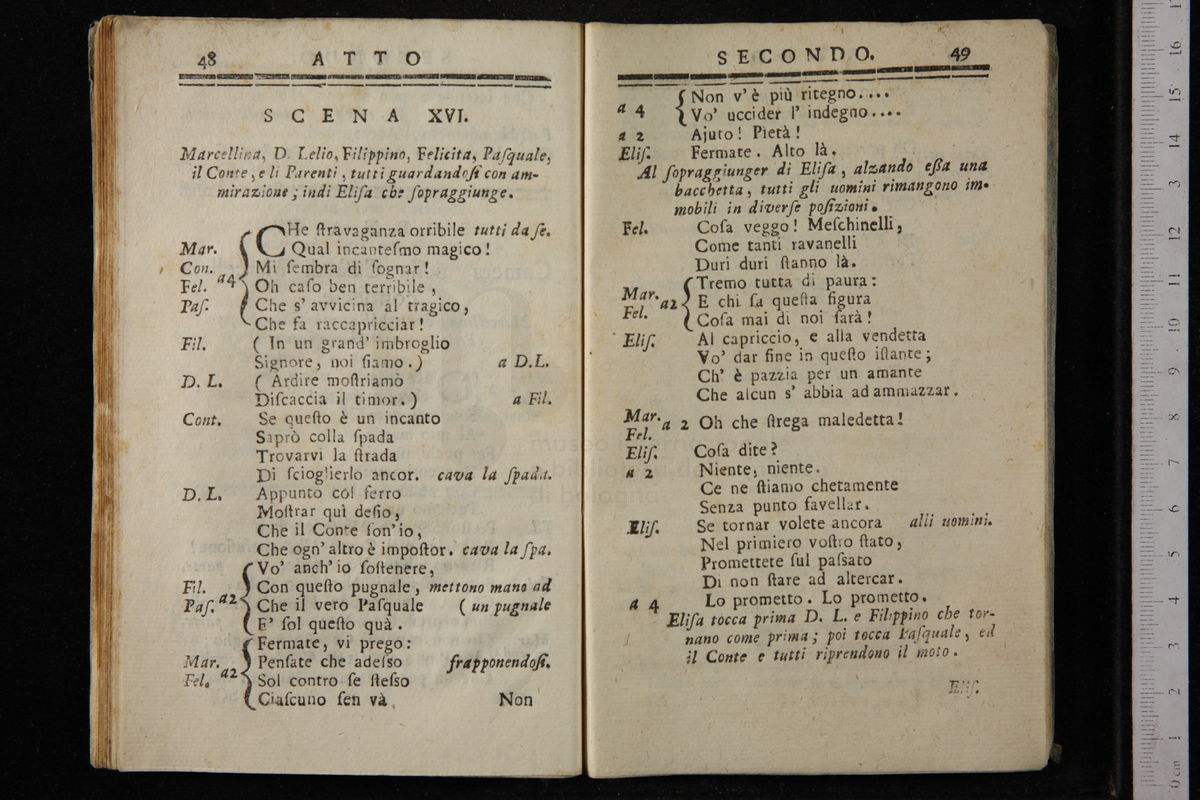 48 ATTO
SCENA XVI.
Marcellina, D. Lelio, Filippino, Felicita, Paſquale,
il Conte, e li Parenti, tutti guardandoſi con am-
mirazione; indi Eliſa che ſopraggiunge.
CHe ſtravaganza orribile tutti da ſe.
Mar. Qual incanteſmo magico!
Con. Mi ſembra di ſognar!
Fel. a4 Oh caſo ben terribile,
Paſ. Che s' avvicina al tragico,
Che fa raccapricciar!
Fil. ( In un grand' imbroglio
Signore, noi ſiamo.) a D.L.
D. L. ( Ardire moſtriamo
Diſcaccia il timor.) a Fil.
Cont. Se queſto è un incanto
Saprò colla ſpada
Trovarvi la ſtrada
Di ſcioglierlo ancor. cava la ſpada.
D. L. Appunto col ferro
Moſtrar quì deſio,
Che il Conte ſon' io,
Che ogn' altro è impoſtor. cava la ſpa.
Vo' anch' io ſoſtenere,
Fil. Con queſto pugnale, mettono mano ad
Paſ. a2 Che il vero Paſquale ( un pugnale
E' ſol queſto quà.
Fermate, vi prego:
Mar. Penſate che adeſso frapponendoſi.
Fel. a2 Sol contro ſe ſteſso
Ciaſcuno ſen và. Non
SECONDO. 49
Non v' è più ritegno....
a 4 Vo' uccider l' indegno....
a 2 Ajuto! Pietà!
Eliſ. Fermate. Alto là.
Al ſopraggiunger di Eliſa, alzando eßa una
bacchetta, tutti gli uomini rimangono im-
mobili in diverſe poſizioni.
Fel. Coſa veggo! Meſchinelli,
Come tanti ravanelli
Duri duri ſtanno là.
Tremo tutta di paura:
Mar. a2 E chi ſa queſta figura
Fel. Coſa mai di noi farà!
Eliſ. Al capriccio, e alla vendetta
Vo' dar fine in queſto iſtante;
Ch' è pazzia per un amante
Che alcun s' abbia ad ammazzar.
Mar. a 2 Oh che ſtrega maledetta!
Fel.
Eliſ. Coſa dite?
a 2 Niente, niente.
Ce ne ſtiamo chetamente
Senza punto favellar.
Eliſ. Se tornar volete ancora alli uomini.
Nel primiero voſtro ſtato,
Promettete ſul paſsato
Di non ſtare ad altercar.
a 4 Lo prometto. Lo prometto.
Eliſa tocca prima D. L. e Filippino che tor-
nano come prima; poi tocca Paſquale, ed
il Conte e tutti riprendono il moto.
Eliſ.